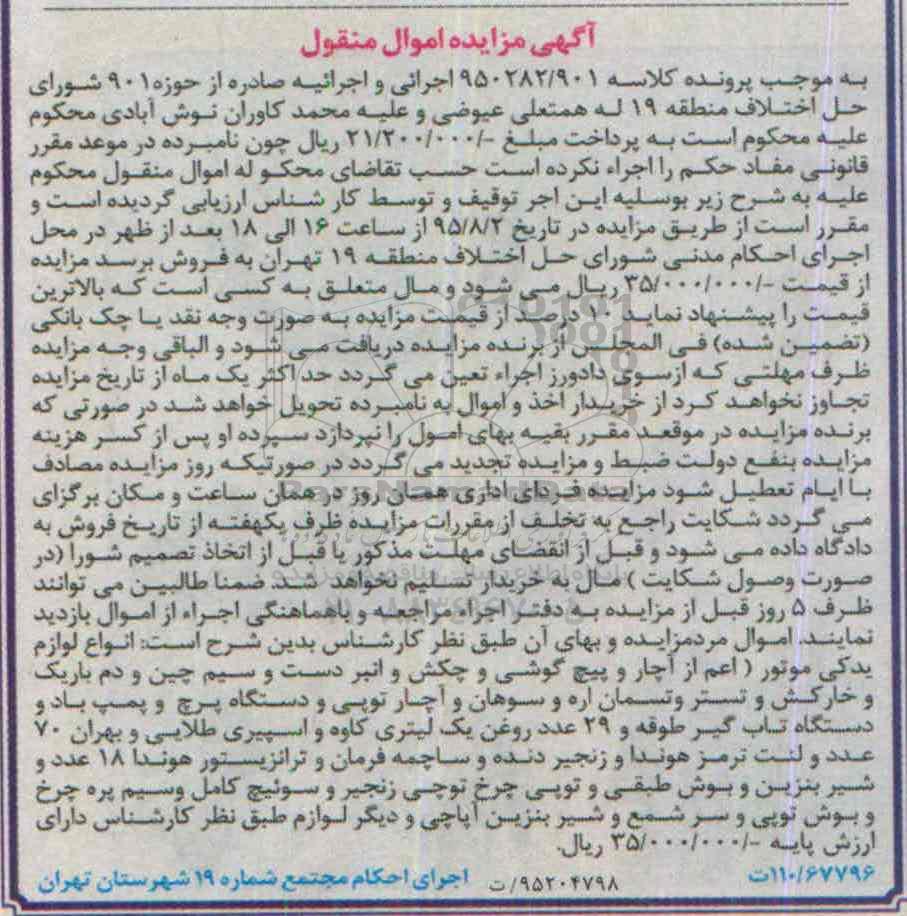 آگهی مزایده اموال منقول
به موجب پرونده کلاسه ۹۵۰۲۸۲/۹۰۱ اجرائی و اجرائیه صادره از حوزه۹۰۱ شورای
حل اختلاف منطقه ۱۹ له همتعلی عیوضی و علیه محمد کاوران نوش آبادی محکوم
علیه محکوم است به پرداخت مبلغ -/۲۱/۲۰۰/۰۰۰ ریال چون نامبرده در موعد مقرر
قانونی مفاد حکم را اجراء نکرده است حسب تقاضای محکو له اموال منقول محکوم
علیه به شرح زیر بوسلیه این اجر توقیف و توسط کار شناس ارزیابی گردیده است و
مقرر است از طریق مزایده در تاریخ ۹۵/۸/۲ از ساعت ۱۶ الی ۱۸ بعد از ظهر در محل
اجرای احکام مدنی شورای حل اختلاف منطقه ۱۹ تهران به فروش برسد مزایده
از قیمت -/۳۵/۰۰۰/۰۰۰ ریال می شود و مال متعلق به کسی است که بالاترین
قیمت را پیشنهاد نماید ۱۰ درصد از قیمت مزایده به صورت وجه نقد یا چک بانکی
(تضمین شده) فی المجلس از برنده مزایده دریافت می شود و الباقی وجه مزایده
ظرف مهلتی که ازسوی دادورز اجراء تعین می گردد حد اکثر یک ماه از تاریخ مزایده
تجاوز نخواهد کرد از خریدار اخذ و اموال به نامبرده تحویل خواهد شد در صورتی که
برنده مزایده در موقعد مقرر بقیه بهای امول را نپردازد سپرده او پس از کسر هزینه
مزایده بنفع دولت ضبط و مزایده تجدید می گردد در صورتیکه روز مزایده مصادف
با ایام تعطیل شود مزایده فردای اداری همان روز در همان ساعت و مکان برگزای
می گردد شکایت راجع به تخلف از مقررات مزایده ظرف یکهفته از تاریخ فروش به
دادگاه داده می شود و قبل از انقضای مهلت مذکور یا قبل از اتخاذ تصمیم شورا (در
صورت وصول شکایت ) مال به خریدار تسلیم نخواهد شد ضمنا طالبین می توانند
ظرف ۵ روز قبل از مزایده به دفتر اجراء مراجعه و باهماهنگی اجراء از اموال بازدید
نمایند. اموال مردمزایده و بهای آن طبق نظر کارشناس بدین شرح است: انواع لوازم
یدکی موتور ( اعم از آچار و پیچ گوشی و چکش و انبر دست و سیم چین و دم باریک
و خارکش و تستر وتسمان اره و سوهان و آچار توپی و دستگاه پرچ و پمپ باد و
دستگاه تاب گیر طوقه و ۲۹ عدد روغن یک لیتری کاوه و اسپیری طلایی و بهران ۷۰
عدد و لنت ترمز هوندا و زنجیر دنده و ساچمه فرمان و ترانزیستور هوندا ۱۸ عدد و
شیر بنزین و بوش طبقی و توپی چرخ توچی زنجیر و سوئیچ کامل وسیم پره چرخ
و بوش توپی و سر شمع و شیر بنزین آپاچی و دیگر لوازم طبق نظر کارشناس دارای
ارزش پایه -/۳۵/۰۰۰/۰۰۰ ریال.
۱۱۰/۶۷۷۹۶ت ۹۵۲۰۴۷۹۸/ت اجرای احکام مجتمع شماره ۱۹ شهرستان تهران